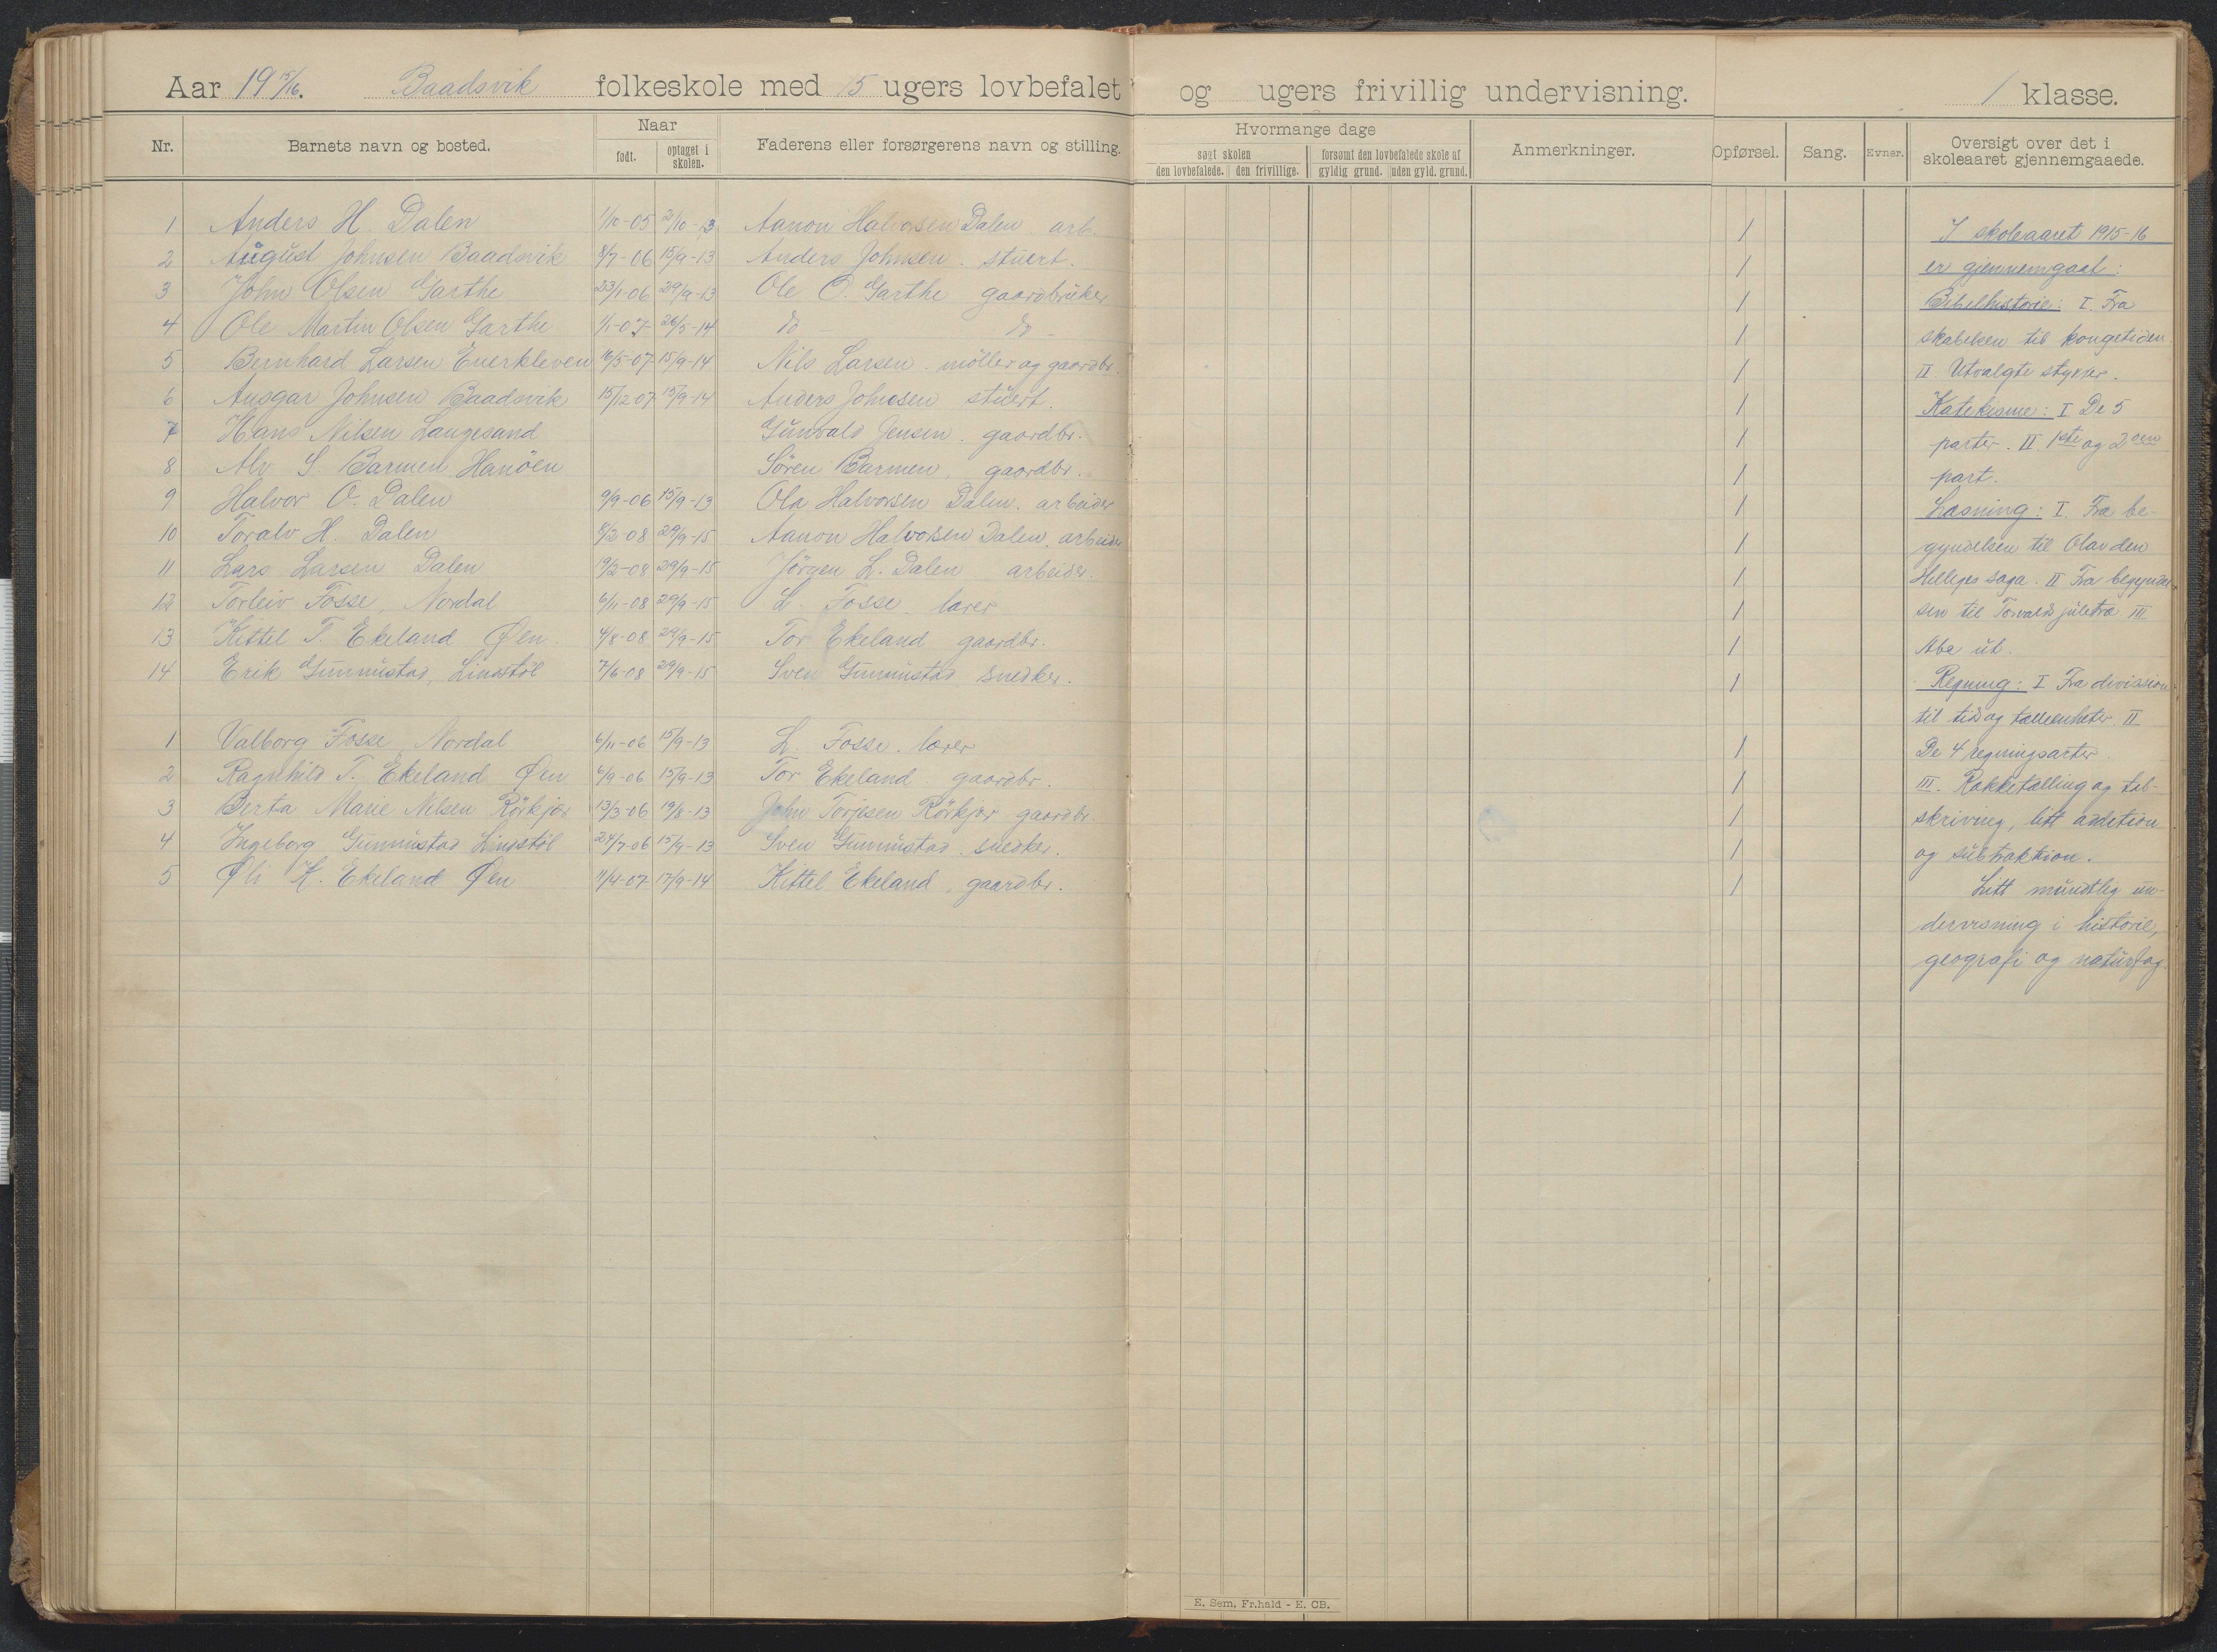 Aar 19 15/16. Baadsvik folkeskole med 15 ugers lovbefalet og ugers frivillig undervisning. 1 klasse.
Nr. Barnets navn og bosted. Naar født. optaget i skolen. Faderens eller forsørgerens navn og stilling. Hvormange dage søgt skolen den lovbefalede. den frivillige. forsømt den lovbefalede skole af gyldig grund. uden gyld. grund. Anmerkninger. Opførsel. Sang. Evner. Oversigt over det i skoleaaret gjennemgaaede.
1 Anders H. Dalen 1/10-05 2/10-13 Aanon Halvorsen Dalen arb. 1
2 August Johnsen Baadsvik 8/7-06 15/9-13 Anders Johnsen. stuert. 1
3 John Olsen Garthe 23/1-06 29/9-13 Ole O. Garthe gaardbruker 1
4 Ole Martin Olsen Garthe 1/1-07 26/5-14 do - do - 1
5 Bernhard Larsen Enerkleven 16/5-07 15/9-14 Nils Larsen. möller og gaardbr. 1
6 Ansgar Johnsen Baadsvik 15/12 07 15/9-14 Anders Johnsen stuert. 1
7 Hans Nilsen Langesand Gunvald Jensen. gaardbr. 1
8 Alv S. Barmen Hanöen Sören Barmen, gaardbr. 1
9 Halvor O. Dalen 9/9-06 15/9-13 Ola Halvorsen Dalen. arbeider 1
10 Toralv H. Dalen 8/2 08 29/9-15 Aanon Halvorsen Dalen. arbeider 1
11 Lars Larsen Dalen 19/2-08 29/9-15 Jörgen L. Dalen arbeider. 1
12 Torleiv Fosse, Nordal 6/11-08 29/9-15 L. Fosse lærer 1
13 Kittel T. Ekeland Øen. 4/8-08 29/9-15 Tor Ekeland gaardbr. 1
14 Erik Gunnustad, Lindstöl 7/6-08 29/9-15 Sven Gunnustad snedker. 1
1 Valborg Fosse, Nordal 6/11-06 15/9-13 L. Fosse. lærer 1
2 Ragnhild T. Ekeland Øen 6/9-06 15/9-13 Tor Ekeland gaardbr. 1
3 Berta Marie Nilsen Rörkjær 13/3-06 19/8-13 John Torjesen Rörkjær gaardbr. 1
4 Ingeborg Gunnustad Lindstöl 24/7-06 15/9-13 Sven Gunnustad snedker. 1
5 K. Ekeland Øen 11/4-07 17/9-14 Kittel Ekeland, gaardbr. 1
I skoleaaret 1915-16
er gjennemgaat:
Bibelhistorie: I. Fra
skabelsen til kongetiden.
II. Utvalgte stykker.
Katekisme: I De 5
parter. II. 1ste og 2den
part.
Læsning: I. Fra be-
gyndelsen til Olav den
Helliges saga. II Fra begyndel-
sen til Torvalds juletræ. III
Abc ut.
Regning: I Fra division
til tid og tælleenheter. II
De 4 regningsarter.
III. Rækketælling og tal-
skriving, litt addition
og subtraktion.
Litt mundtlig un-
dervisning i historie,
geografi og naturfag.
E. Sem, Fr.hald - E. CB.